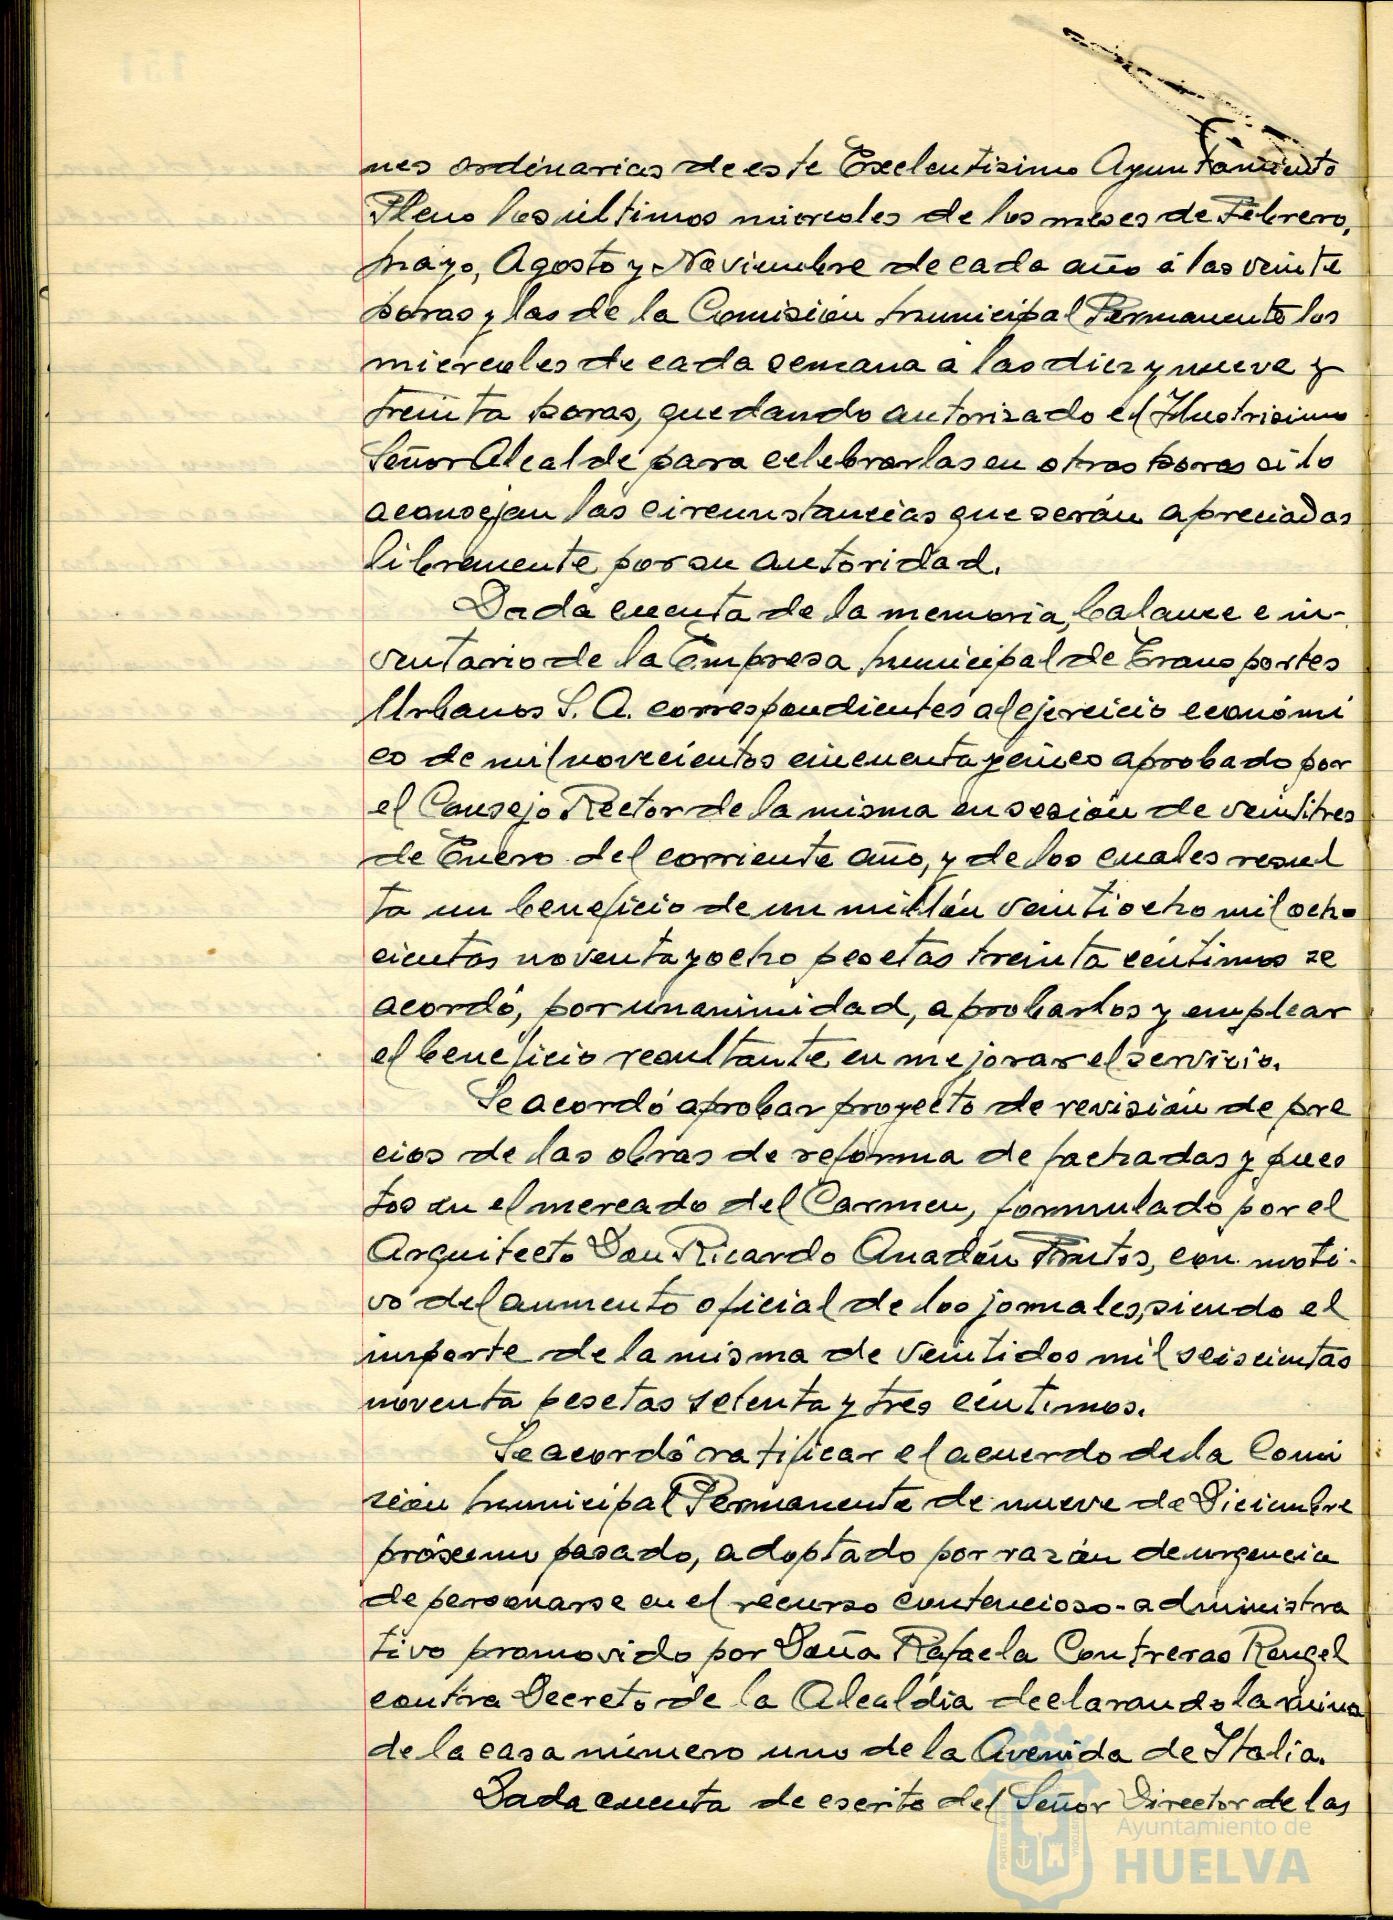 nes ordinarias de este Excelentisimo Ayuntamiento
Pleno los ultimos miercoles de los meses de Febrero,
Mayo, Agosto y Noviembre de cada año a las veinte
horas y las de la Comisión Municipal Permanente los
miercoles de cada semana a las diez y nueve y
treinta horas, quedando autorizado el Ilustrisimo
Señor Alcalde para celebrarlas en otras horas si lo
aconsejan las circunstancias que serán apreciadas
libremente por su autoridad.
Dada cuenta de la memoria, balance e in-
ventario de la Empresa Municipal de Transportes
Urbanos S. A. correspondientes al ejercicio económi
co de mil novecientos cincuenta y cinco aprobado por
el Consejo Rector de la misma en sesión de veintitres
de Enero del corriente año, y de los cuales resul
ta un beneficio de un millón veintiocho mil ocho
cientas noventa y ocho pesetas treinta céntimos se
acordó, por unanimidad, aprobarlos y emplear
el beneficio resultante en mejorar el servicio.
Se acordó aprobar proyecto de revisión de pre
cios de las obras de reforma de fachadas y pues
tos en el mercado del Carmen, formulado por el
Arquitecto Don Ricardo Anadón Frutos, con moti-
vo del aumento oficial de los jornales, siendo el
importe de la misma de veintidos mil seiscientas
noventa pesetas setenta y tres céntimos.
Se acordó ratificar el acuerdo de la Comi
sión Municipal Permanente de nueve de Diciembre
próximo pasado, adoptado por razón de urgencia
de personarse en el recurso contencioso-administra
tivo promovido por Doña Rafaela Contreras Rengel
contra Decreto de la Alcaldia declarando la ruina
de la casa número uno de la Avenida de Italia.
Dada cuenta de escrito del Señor Director de las
Ayuntamiento de
HUELVA